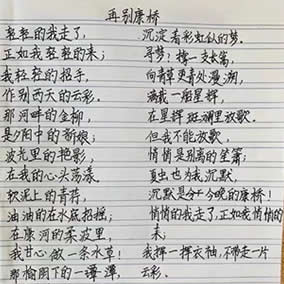 再别康桥
轻轻的我走了,
正如我轻轻的来;
我轻轻的招手,
作别西天的云彩。
那河畔的金柳,
是夕阳中的新娘;
波光里的艳影,
在我的心头荡漾。
软泥上的青荇,
油油的在水底招摇;
在康河的柔波里,
我甘心做一条水草!
那榆阴下的一潭,
沉淀着彩虹似的梦。
寻梦?撑一支长篙,
向青草更青处漫溯,
满载一船星辉,
在星辉斑斓里放歌。
但我不能放歌,
悄悄是别离的笙箫;
夏虫也为我沉默,
沉默是今晚的康桥!
悄悄的我走了,正如我悄悄的
来;
我挥一挥衣袖,不带走一片
云彩。